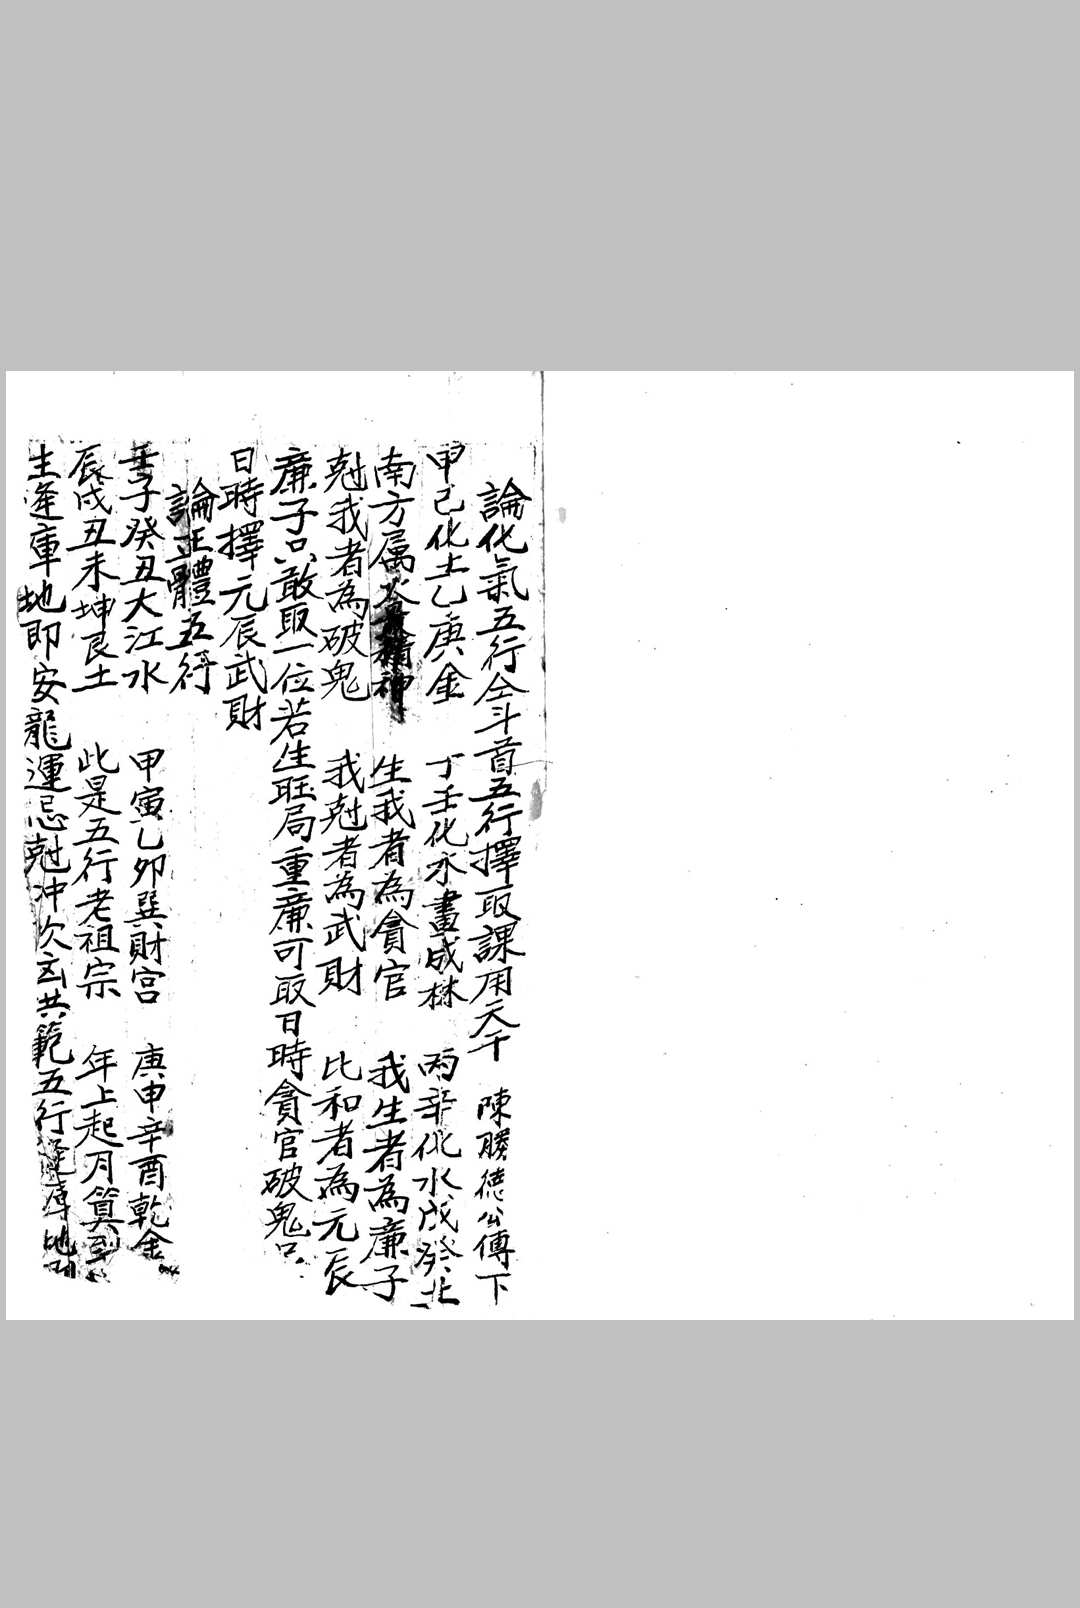 論化氣五行全斗首五行擇取課用天干 陳勝德公傅下
甲己化土乙庚金 丁壬化水畫成林 丙辛化水戊癸北
南方属 生我者為貪官 我生者為廉子
尅我者為破鬼 我尅者為武財 比和者為元辰
廉子只敢取一位若生旺局重廉可取日時貪官破鬼只
日時擇元辰武財
論正體五行
壬子癸丑大江水 甲寅乙卯巽財宮 庚申辛酉乾金
辰戌丑未坤艮土 此是五行老祖宗 年上起月算到
主逢庫地即安龍運忌尅冲欠 共範五行逢庫地